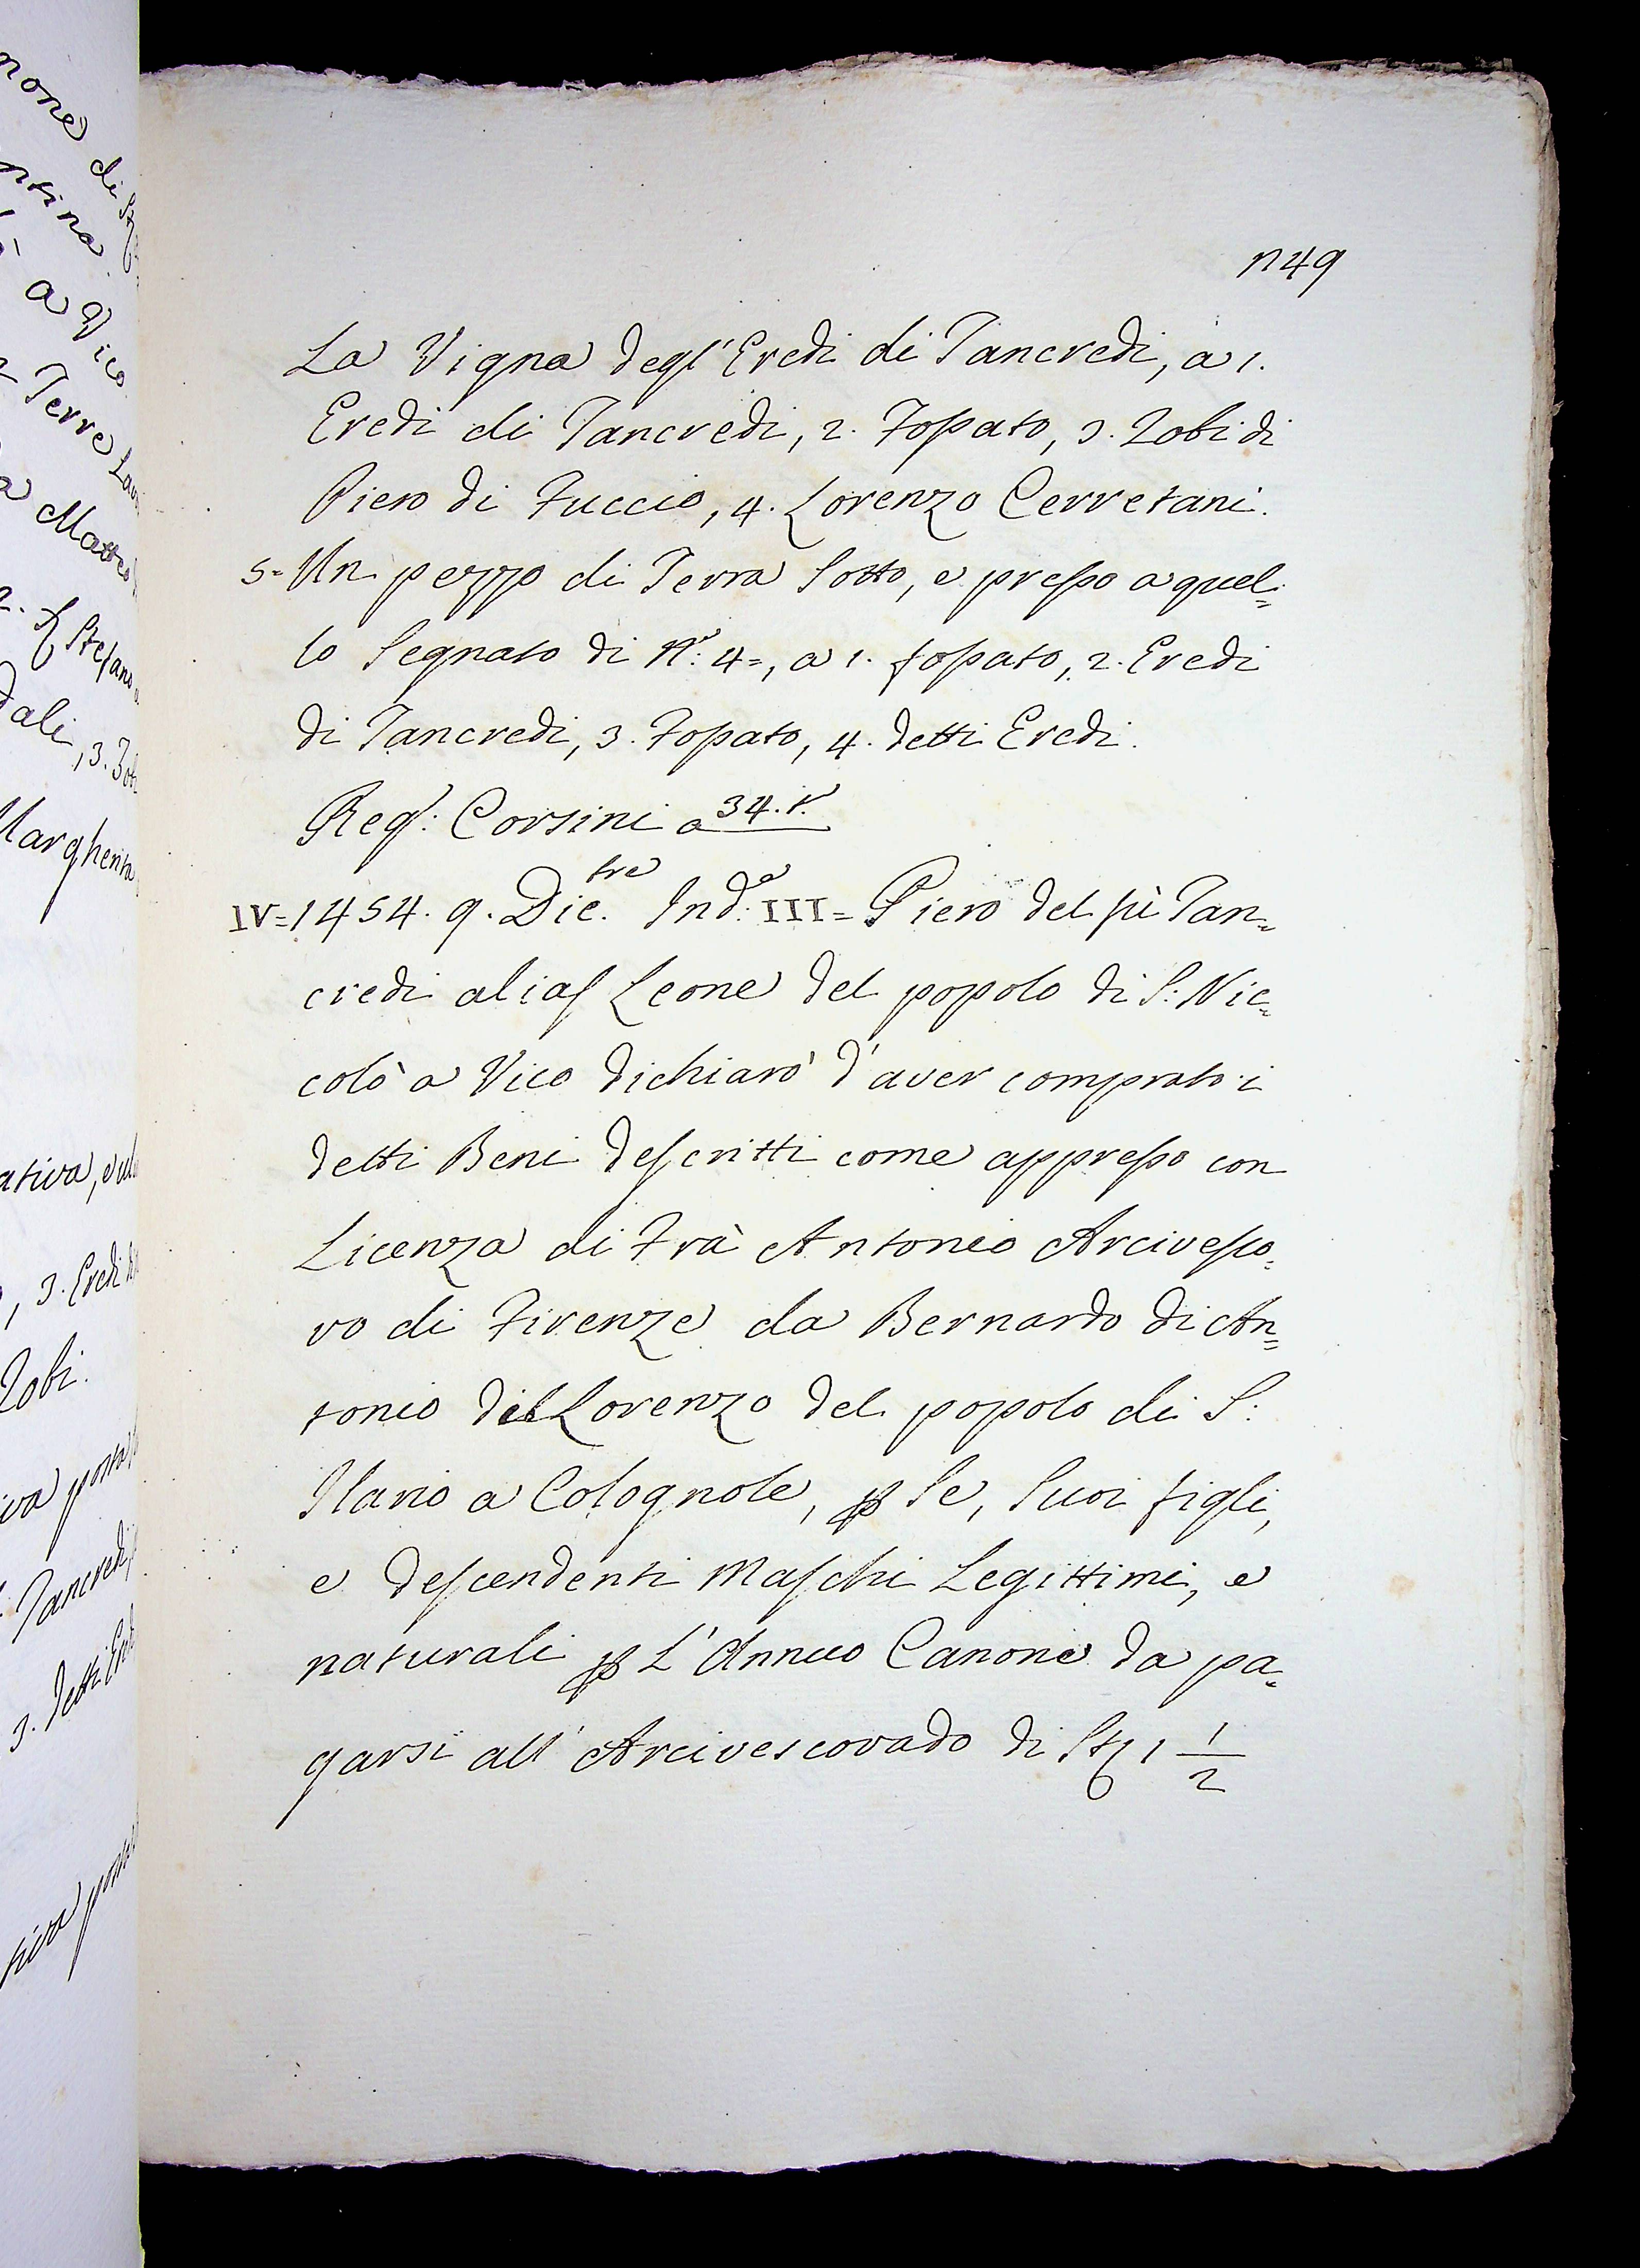 n49
La Vigna degl'Eredi di Tancredi, a 1.
Eredi di Tancredi, 2. Foſsato, 3. Zobi di
Piero di Fuccio, 4. Lorenzo Cerretani.
5= Un pezzo di Terra Sotto, e preſso a quel=
lo Segnato di N.º 4=, a 1. foſsato, 2. Eredi
di Tancredi, 3. Foſsato, 4. detti Eredi.
Reg.: Corsini a 34. t.
IV=1454. 9. Dic.tre Ind.a III= Piero del fù Tan=
credi aliaſ Leone del popolo di S: Nic=
colò a Vico dichiarò d'aver comprato i
detti Beni deſcritti come appreſso con
Licenza di Frà Antonio Arciveſco=
vo di Firenze da Bernardo di An=
tonio del Lorenzo del popolo di S:
Ilario a Colognole, ꝑ Se, Suoi figli,
e deſcendenti Maſchi Legittimi, e
naturali ꝑ L'Annuo Canone da pa=
garsi all'Arcivescovado di St. 1 1/2
mone di
ntina
a Vico
Terre Lav
Matteo
2. Stefano
dali, 3. Zobi
Margherita
ativa, e ul
, 3. Eredi di
Zobi.
iva posta
Tancredi,
3. detti Ered
tiva posta